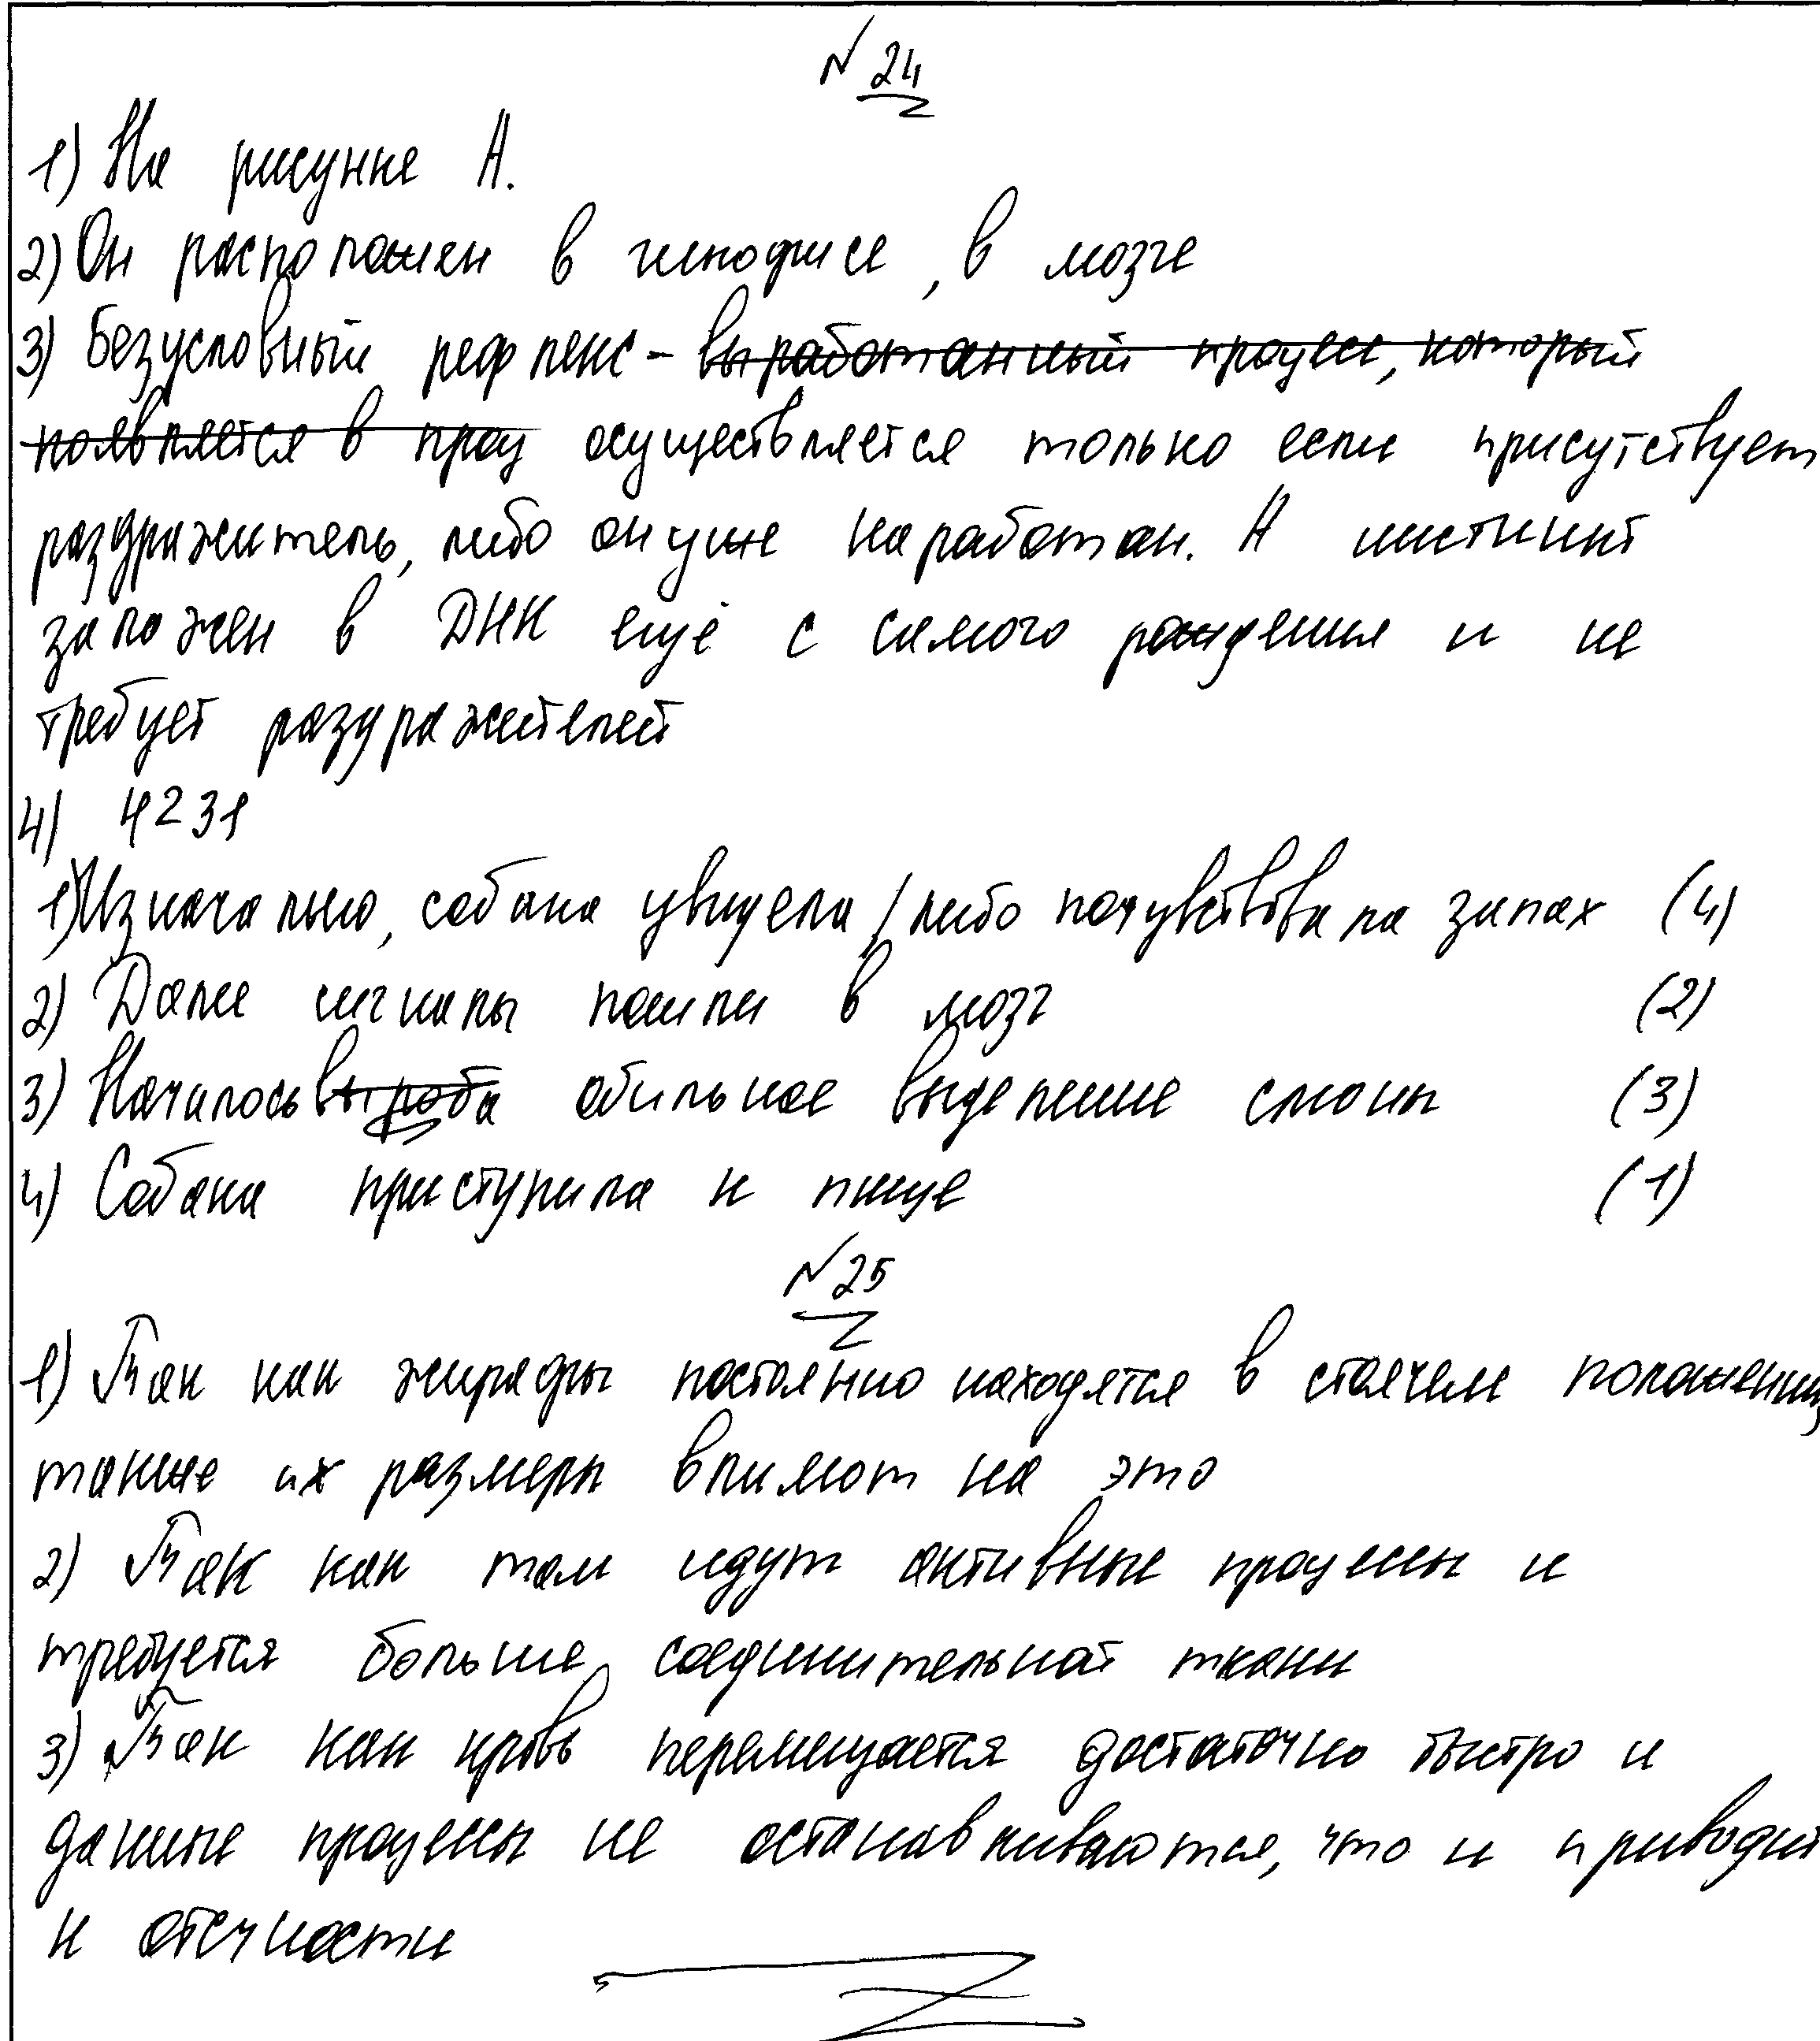 № 24
1) На рисунке А.
2) Он расположен в гипофисе, в мозге
3) Безусловный рефлекс - выработанный процесс, который
появляется в проц осуществляется только если присутствует
раздражитель, либо он уже наработан. А инстинкт
заложен в ДНК ещё с самого рождения и не
требует раздражителей
4) 4231
1) Изначально, собака увидела / либо почувствовала запах (4)
2) Далее сигналы пошли в мозг (2)
3) Началось выраба обильное выделение слюны (3)
4) Собака приступила к пище (1)
№ 25
1) Так как жирафы постоянно находятся в стоячем положении,
также их размеры влияют на это
2) Так как там идут активные процессы и
требуется больше соединительной ткани
3) Так как кровь перемещается достаточно быстро и
данные процессы не останавливаются, что и приводит
к отечности